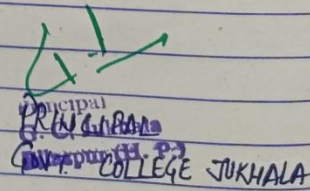 Principal
PRINCIPAL
GOVT. COLLEGE JUKHALA